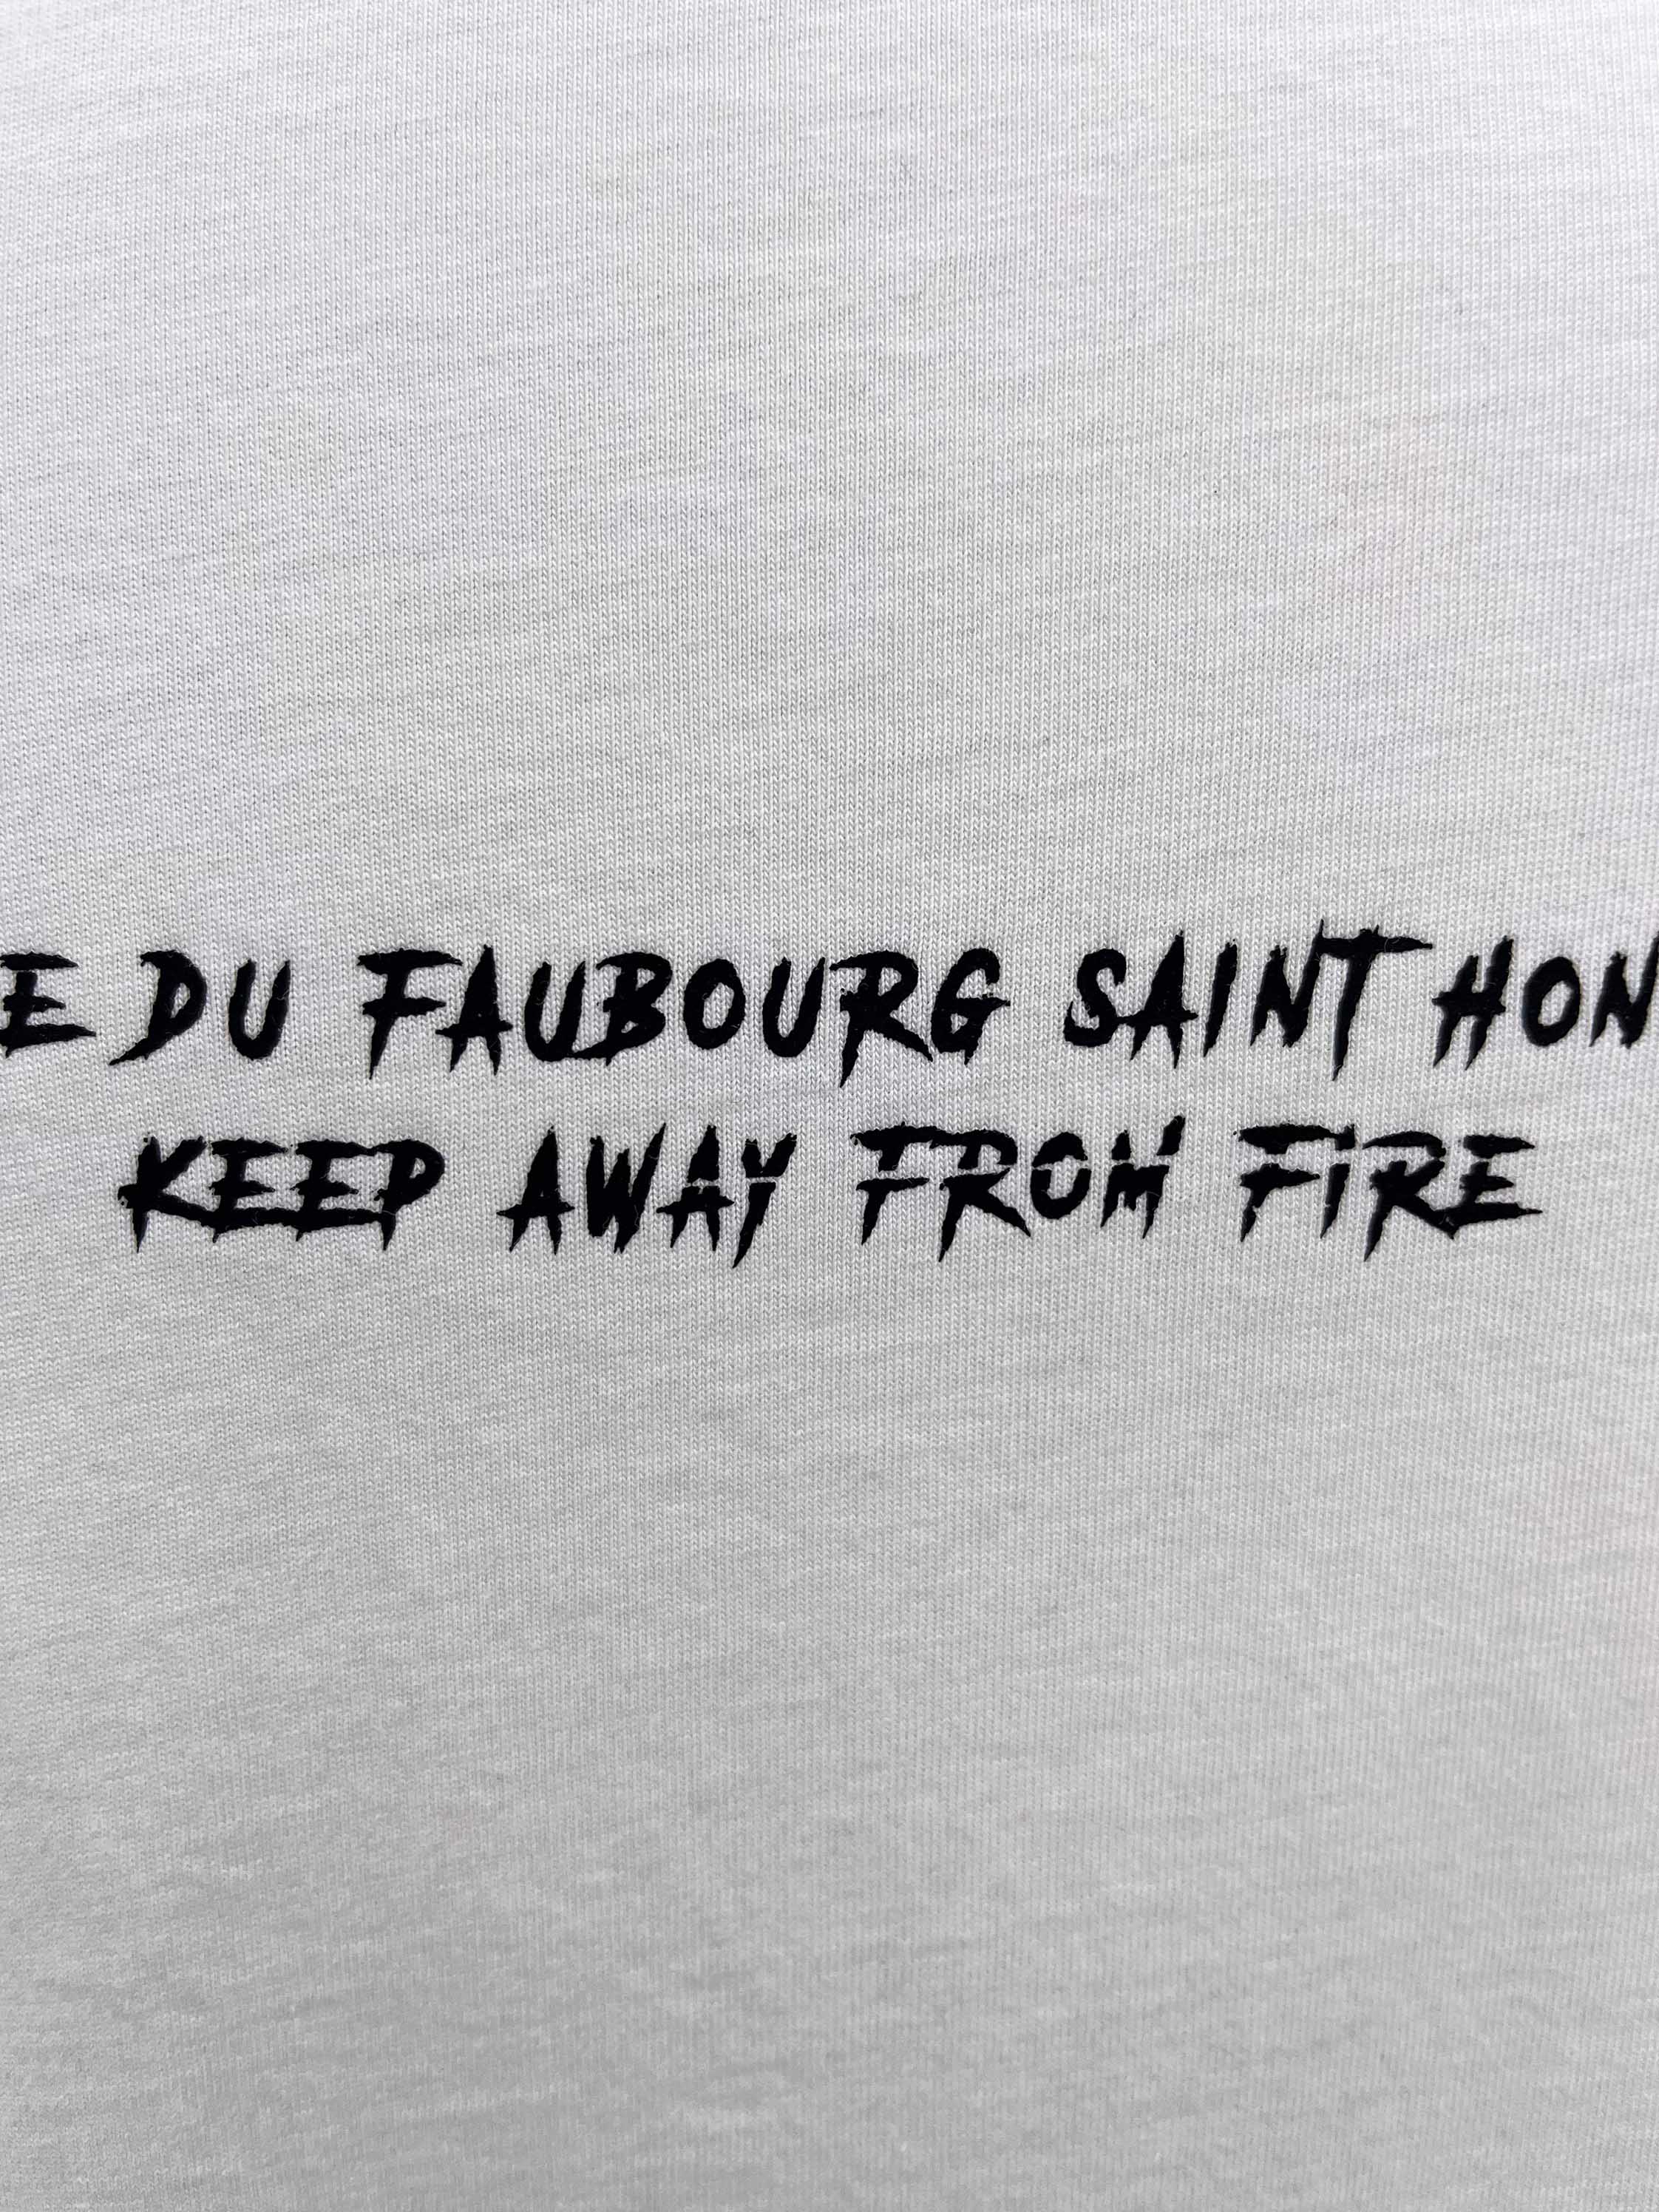 E DU FAUBOURG SAINT HON
KEEP AWAY FROM FIRE